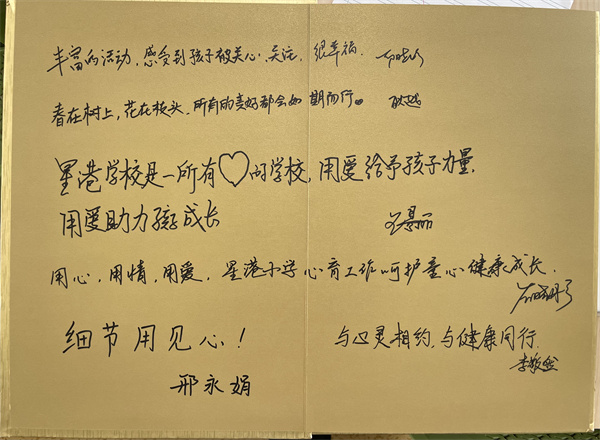 丰富的活动，感受到孩子被关心、关注，很幸福.
春在树上，花在枝头，所有的美好都会如期而行。 耿越
星港学校是一所有♡的学校，用爱给予孩子力量，
用爱助力孩子成长
用心，用情，用爱，星港小学心育工作呵护童心健康成长.
细节用见心！
与心灵相约，与健康同行.
邢永娟